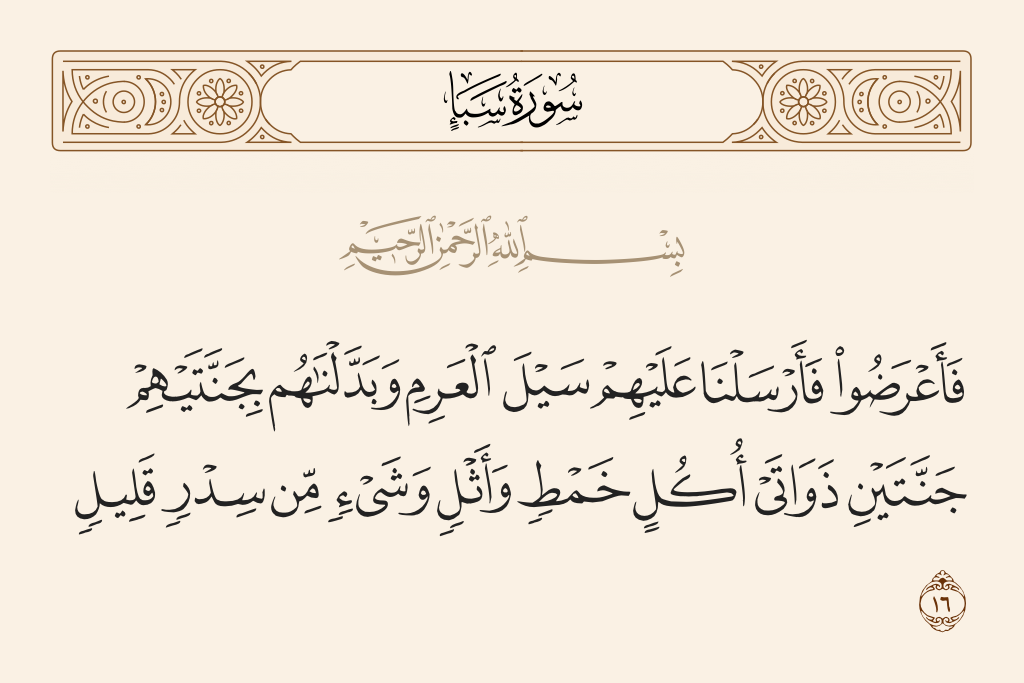 سُورَةُ سَبَإٍ
بِسْمِ ٱللَّهِ ٱلرَّحْمَٰنِ ٱلرَّحِيمِ
فَأَعْرَضُوا۟ فَأَرْسَلْنَا عَلَيْهِمْ سَيْلَ ٱلْعَرِمِ وَبَدَّلْنَٰهُم بِجَنَّتَيْهِمْ
جَنَّتَيْنِ ذَوَاتَىْ أُكُلٍ خَمْطٍ وَأَثْلٍ وَشَىْءٍ مِّن سِدْرٍ قَلِيلٍ
١٦